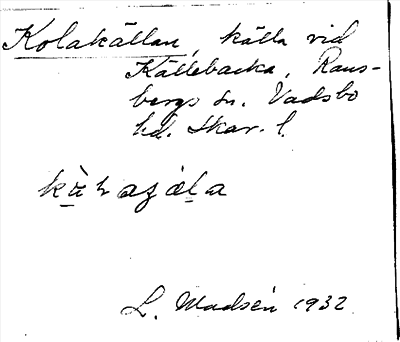 Kolakällan, källa vid
Källebacka, Rans-
bergs sn. Vadsbo
hd. Skar. l.
L. Madsén 1932